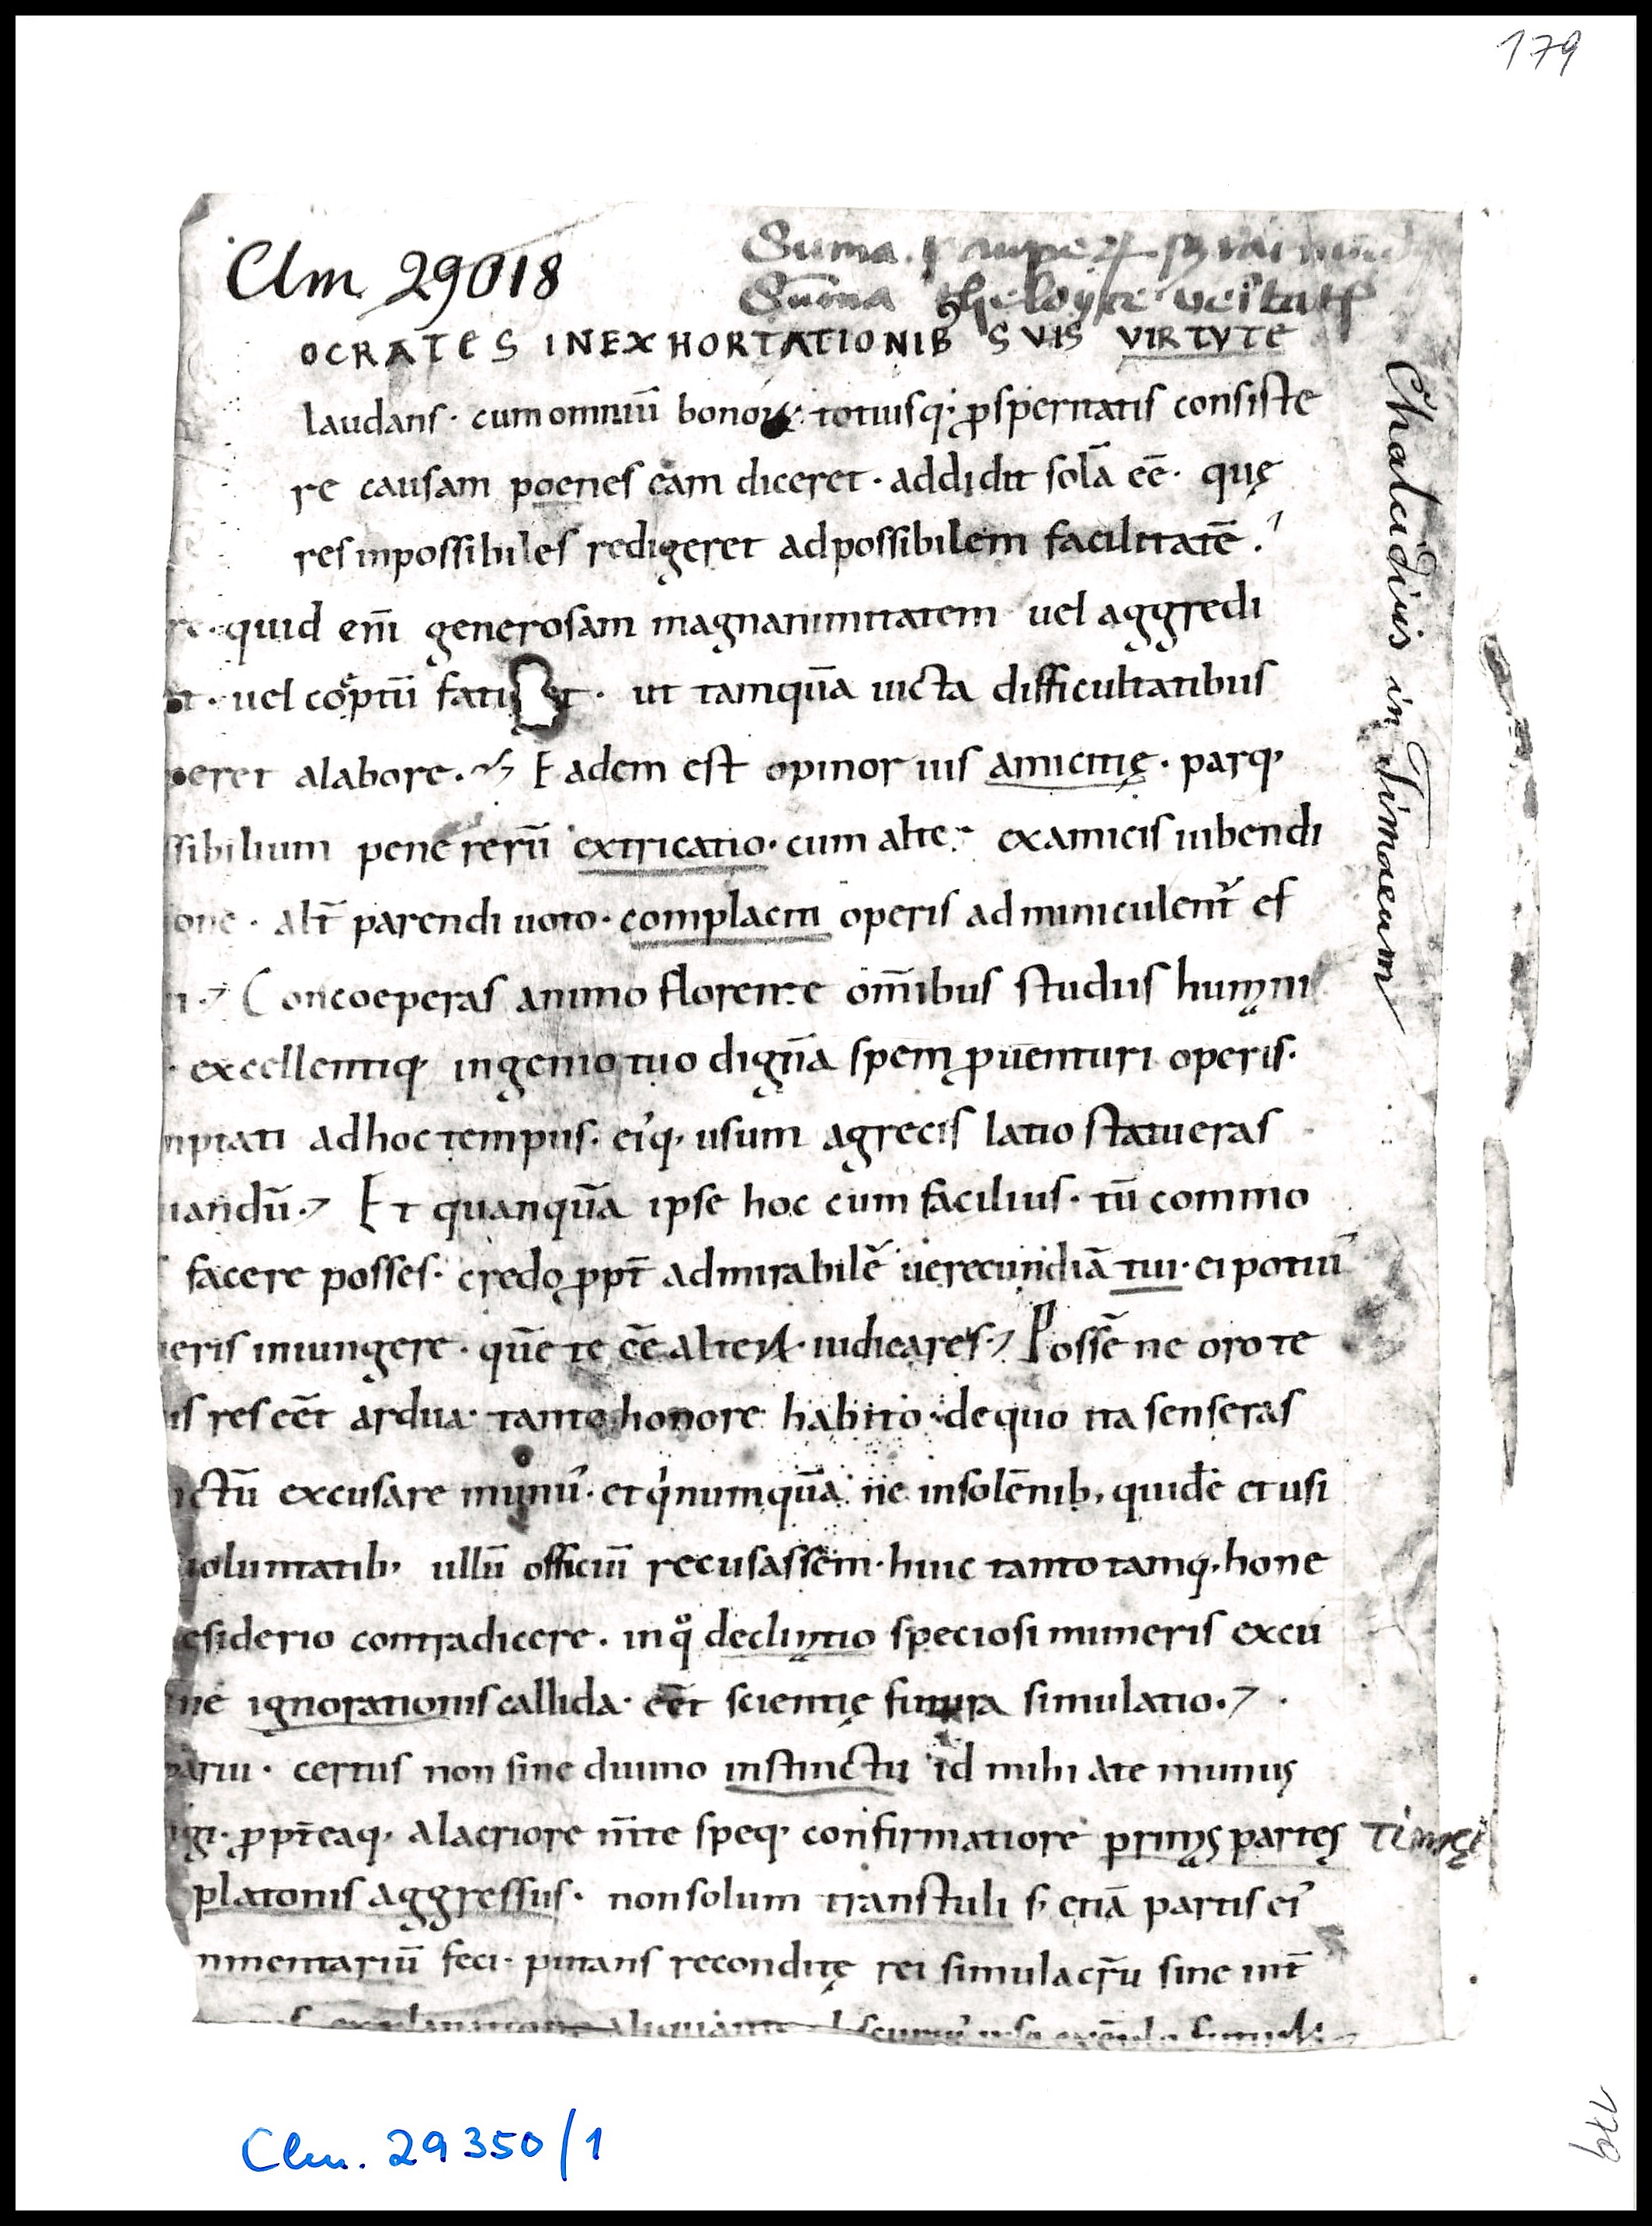 179
Clm 29018
Suma
Sum̄a theloyce ueitatis
OCRATES INEXHORTATIONIB SVIS VIRTVTE
laudans · cum omniū bonoꝝ · totiusq; ꝓsperitatis consiste
re causam poenes eam diceret · addidit solā eē · quę
res inpossibiles redigeret ad possibilem facilitatē ·
quid eni̅ generosam magnanimitatem uel aggredi
t · uel coeptū fati t · ut tamquā uicta difficultatibus
eret a labore · Eadem est opinor uis amicitię · parq;
ssibilium pene rerū extricatio · cum alter ex amicis iubendi
one · alt̅ parendi uoto · complaciti operis adminiculent̅ ef
Conceperas animo florente om̅ibus studiis humani
excellentiq; ingenio tuo dignā spem ꝓuenturi operis ·
nptati ad hoc tempus · ei'q; usum a grecis latio statueras
uandū · Et quanquā ipse hoc cum facilius · tū commo
facere posses · credo ꝓpt̅ admirabilē uerecundiā tui · ei potiu'
eris iniungere · quē te eē alterꝝ iudicares · Possē ne oro te
is res eēt ardua · tanto honore habito · de quo ita senseras
ictū excusare munu' · et qi numquā ne in solēnib; quidē et usi
uoluntatib; ullū officiū recusassem · huic tanto tamq; hone
esiderio contradicere · in qo declinatio speciosi muneris excu
ne ignorationis callida · eēt scientię futura simulatio ·
pariu · certus non sine diuino instinctu id mihi a te munus
gi · ꝓpt̅eaq; alacriore m̅te speq; confirmatiore primas partes timęi
platonis aggressus · non solum transtuli s; etiā partis ei'
mmentariū feci · putans reconditę rei simulacr̅u sine int̅
Chalcidius in Timaeum
Clm. 29350/1
179